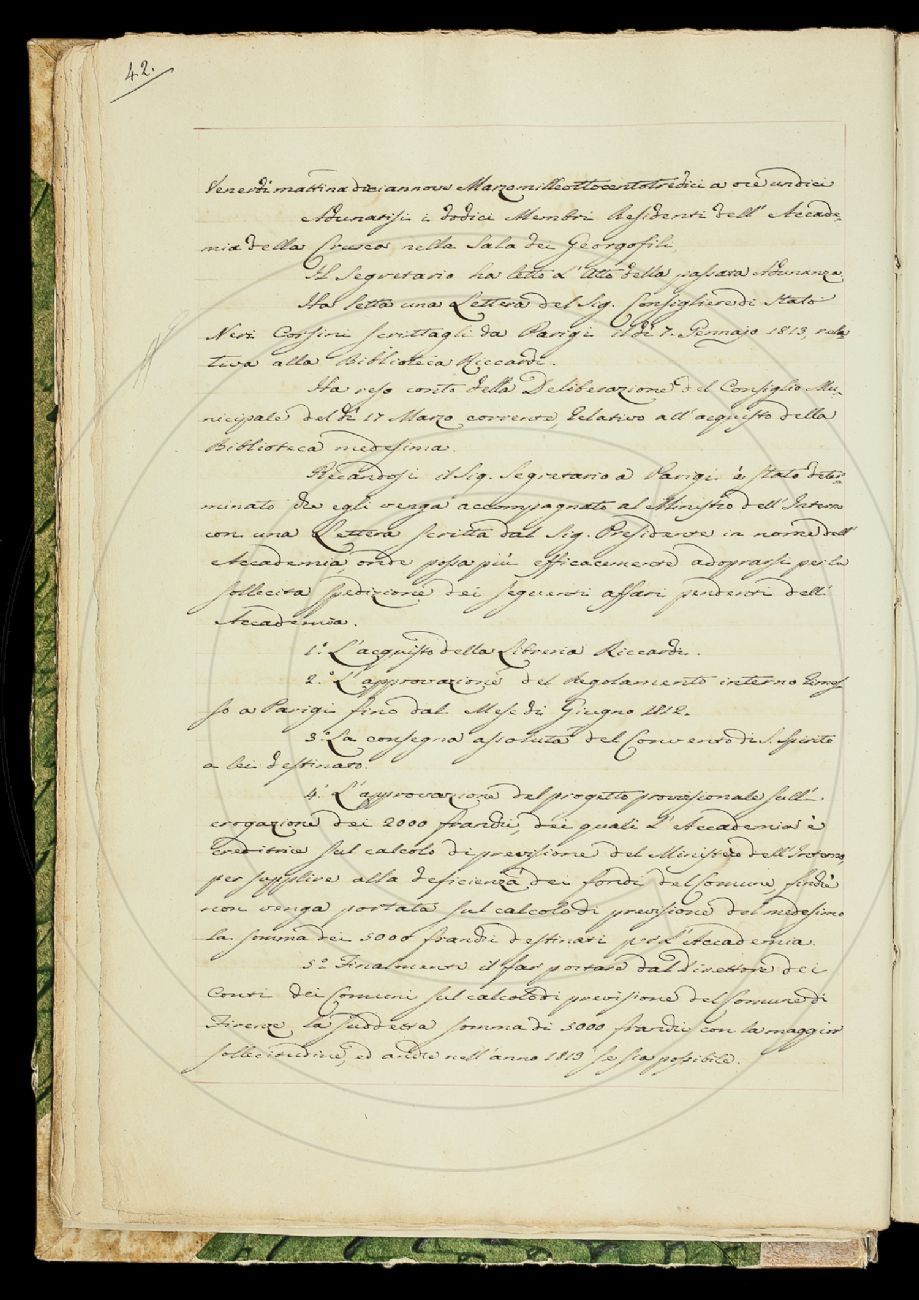 42.
Venerdì mattina diciannove Marzo milleottocentotredici a ore undici
Adunatisi i dodici Membri Residenti dell' Accade-
mia della Crusca nella Sala dei Georgofili
Il Segretario ha letto l'Atto della passata Adunanza
Ha letta una Lettera del Sig. Consigliere di Stato
Neri Corsini scrittagli da Parigi il dì 7. Gennajo 1813, rela-
tiva alla Biblioteca Riccardi.
Ha reso conto della Deliberazione del Consiglio Mu-
nicipale del dì 17 Marzo corrente, relativo all' acquisto della
Biblioteca medesima.
Recandosi il Sig. Segretario a Parigi è stato deter-
minato che egli venga accompagnato al Ministro dell' Interno
con una Lettera scritta dal Sig. Presidente in nome dell'
Accademia, onde possa più efficacemente adoprarsi per la
sollecita spedizione dei seguenti affari pendenti dell'
Accademia.
1.° L'acquisto della Libreria Riccardi.
2.° L'approvazione del Regolamento interno trames-
so a Parigi fino dal Mese di Giugno 1812.
3.° La consegna assoluta del Convento di S. Spirito
a lei destinato.
4.° L'approvazione del progetto provvisionale sull'
erogazione dei 2000 franchi, dei quali l'Accademia è
creditrice sul calcolo di previsione del Ministero dell' Interno,
per supplire alla deficienza dei fondi del Comune, finchè
non venga portata sul calcolo di previsione del medesimo
la somma dei 5000 franchi destinati per l'Accademia.
5.° Finalmente il far portare dal Direttore dei
Conti dei Comuni sul calcolo di previsione del Comune di
Firenze, la suddetta somma di 5000 franchi con la maggior
sollecitudine, ed anche nell' anno 1813 se sia possibile.